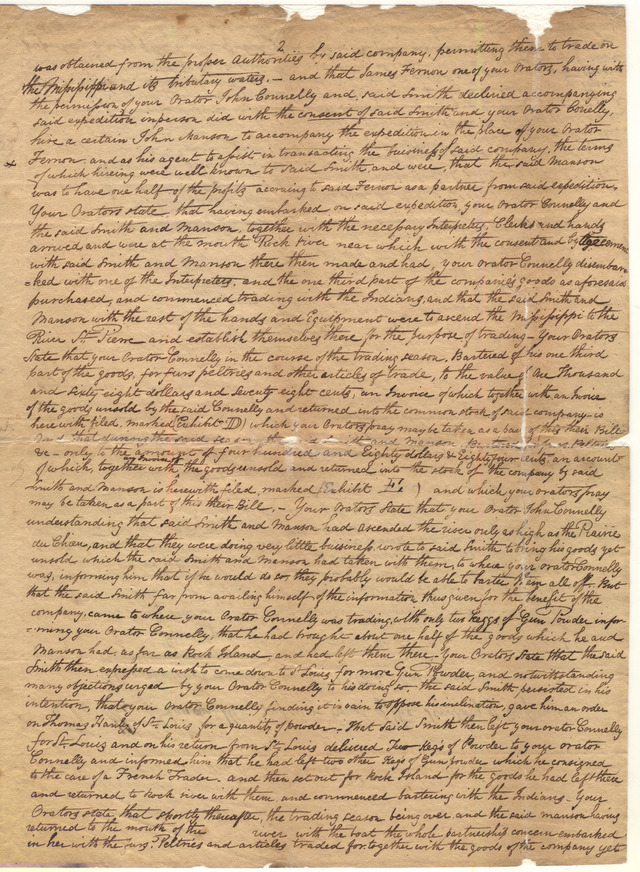 2
was obtained from the proper Authorities by said company, permitting them to trade on
the Mississippi and its tributary waters, — and that James Fernon one of your Orators, having with
the permission of your Orator John Connelly and, said Smith declined accompanying
said expedition in person did with the consent of said Smith and your Orator Conelly,
hire a certain John Manson to accompany the expedition in the place of your Orator
Fernon, and as his agent to assist in transacting the buisiness of said company, the terms
x of which hireing were well known to said Smith, and were, that the said Manson
was to have one half of the profits accruing to said Fernon as a partner from said expedition.
Your Orators state, that having embarked on said expedition your Orator Connelly and
the said Smith and Manson, together with the necessary Interpreters, Clerks and hands
arrived and were at the mouth Rock River near which with the consent and by agreement
with said Smith and Manson there then made and had, your Orator Connelly disembar=
=ked with one of the Interpreters, and the one third part of the companies goods as aforesaid
purchased, and commenced trading with the Indians, and that the said Smith and
Manson with the rest of the hands and Equipment were to ascend the Mississippi to the
River St Piere and establish themselves there for the purpose of trading — Your Orators
State that your Orator Connelly in the course of the trading season, Bartered of his one third
part of the goods, for furs peltries and other articles of trade, to the value of One Thousand
and sixty eight dollars and seventy eight cents, an Invoice of which together with an Invoice
of the goods unsold by the said Connelly and returned into the common stock of said company is
here with filed, marked (Exhibit D) which your Orators pray may be taken as a part of this their Bill
And that during the said season the said Smith and Manson Bartered for furs Peltries
&c — only to the amount of four hundred and Eighty dollars & Eighty four cents, an account
of which, together with the goods unsold and returned into the stock of the company by said
Smith and Manson is herewith filed, marked (Exhibit E) and which your orators pray
may be taken as a part of this their Bill. — Your Orators State that your Orator John Connelly
understanding that said Smith and Manson had ascended the river only as high as the Prairie
du Chien, and that they were doing very little buisiness, wrote to said Smith to bring his goods yet
unsold which the said Smith and Manson had taken with them, to where your orator Connelly
was, informing him that if he would do so, they probably would be able to barter them all off. But
that the said Smith far from availing himself of the information thus given for the benefit of the
company, came to where your Orator Connelly was trading, with only two Kaggs of Gun Powder infor=
=ming your Orator Connelly, that he had brought about one half of the goods which he and
Manson had, as far as Rock Island, and had left them there — Your Orators State that the said
Smith then expressed a wish to come down to St Louis, for more Gun Powder, and notwithstanding
many objections urged by your Orator Connelly to his doing so, the said Smith persisted in his
intention, that your Orator Connelly finding it in vain to oppose his inclination, gave him an order
on Thomas Hanly of St. Louis for a quantity of powder, — That said Smith then left your orator Connelly
for St. Louis and on his return from St. Louis delivered Two Kegs of Powder to your orator
Connelly and informed him that he had left two other Kegs of Gun powder which he consigned
to the care of a French Trader — and then set out for Rock Island for the goods he had left there
and returned to Rock river with them, and commenced bartering with the Indians — Your
Orators state that shortly thereafter, the trading season being over, and the said manson having
returned to the mouth of the river with the boat the whole partnership concern embarked
in her with the furs, Peltries and articles traded for, together with the goods of the company yet